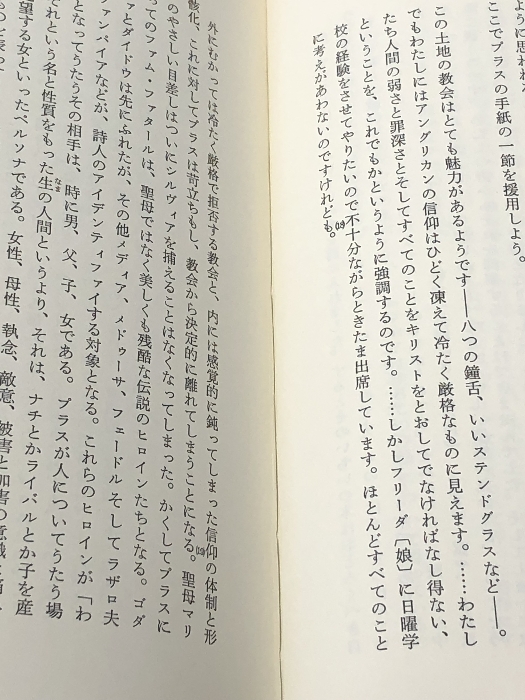 ように思われる
ここでプラスの手紙の一節を援用しよう。
この土地の教会はとても魅力があるようです――八つの鐘舌、いいステンドグラスなど――。
でもわたしにはアングリカンの信仰はひどく凍えて冷たく厳格なものに見えます。……わたし
たち人間の弱さと罪深さとそしてすべてのことをキリストをとおしてでなければなし得ない、
ということを、これでもかというように強調するのです。……しかしフリーダ〔娘〕に日曜学
校の経験をさせてやりたいので不十分ながらときたま出席しています。ほとんどすべてのこと
に考えがあわないのですけれども。
外にむかっては冷たく厳格で拒否する教会と、内には感覚的に鈍ってしまった信仰の体制と形
骸化、これに対してプラスは苛立ちもし、教会から決定的に離れてしまうことになる。聖母マリ
のやさしい目差しはついにシルヴィアを捕えることはなくなってしまった。かくしてプラスに
ってのファム・ファタールは、聖母ではなく美しくも残酷な伝説のヒロインたちとなる。ゴダ
ァとダイドウは先にふれたが、その他メディア、メドゥーサ、フェードルそして ラザロ夫
ァンパイアなどが、詩人のアイデンティファイする対象となる。これらのヒロインが「わ
となってうたうその相手は、時に男、父、子、女である。プラスが人についてうたう場
それという名と性質をもった生の人間というより、それは、ナチとかライバルとか子を産
望する女といったペルソナである。女性、母性、執念、敵意、被害と加害の意識